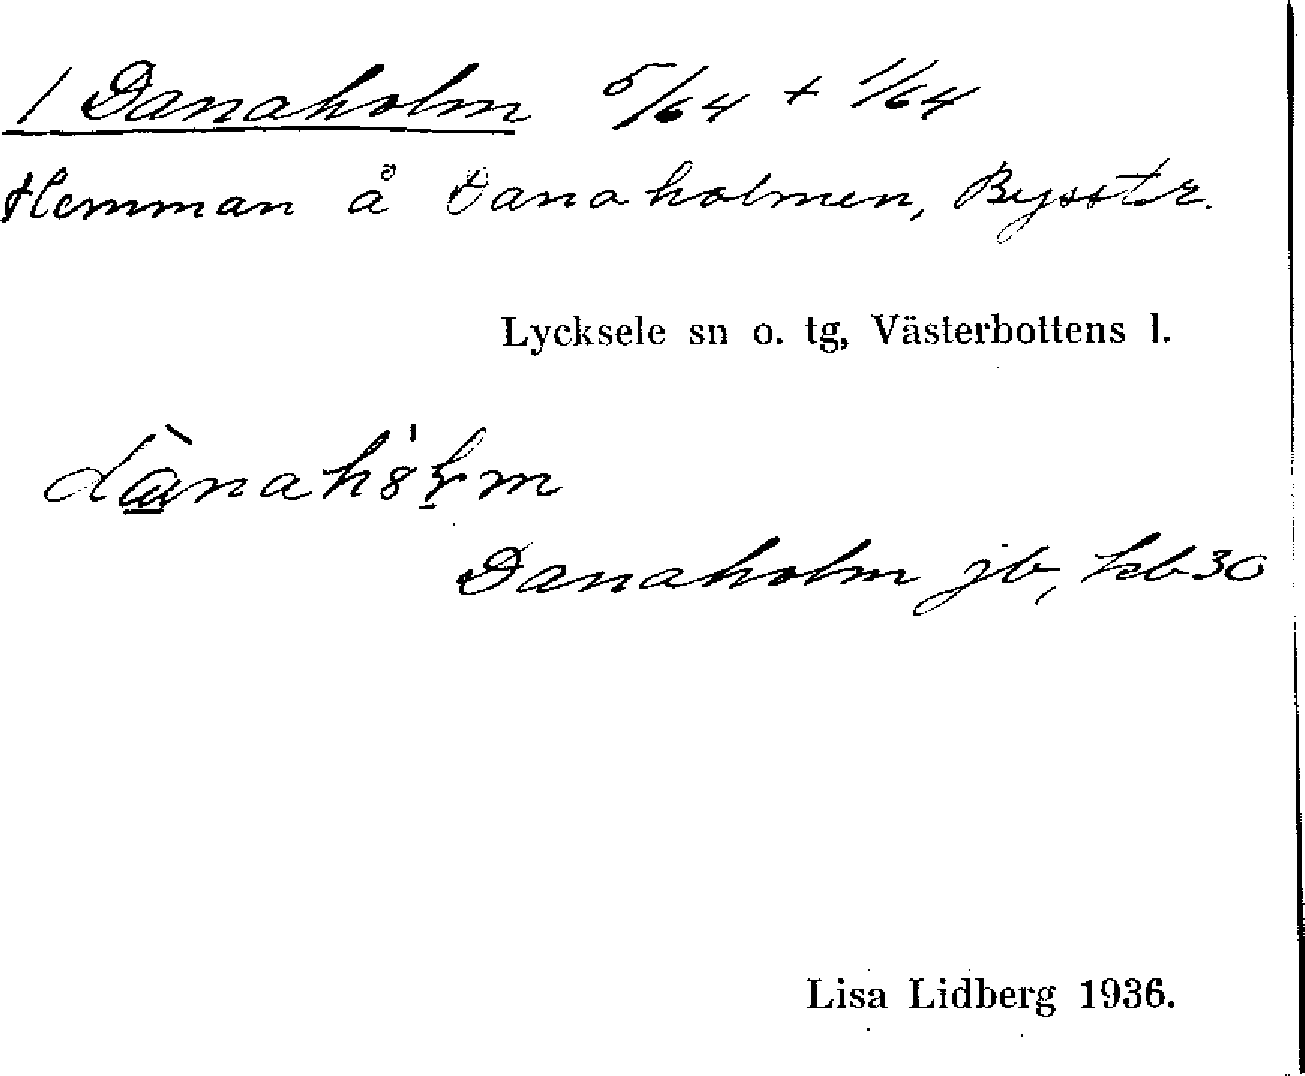 1 Danaholm 5/64 + 1/64
Hemman å Danaholmen, Bysstr.
Lycksele sn o. tg, Västerbottens l.
Danaholm jb, kb 30
Lisa Lidberg 1936.